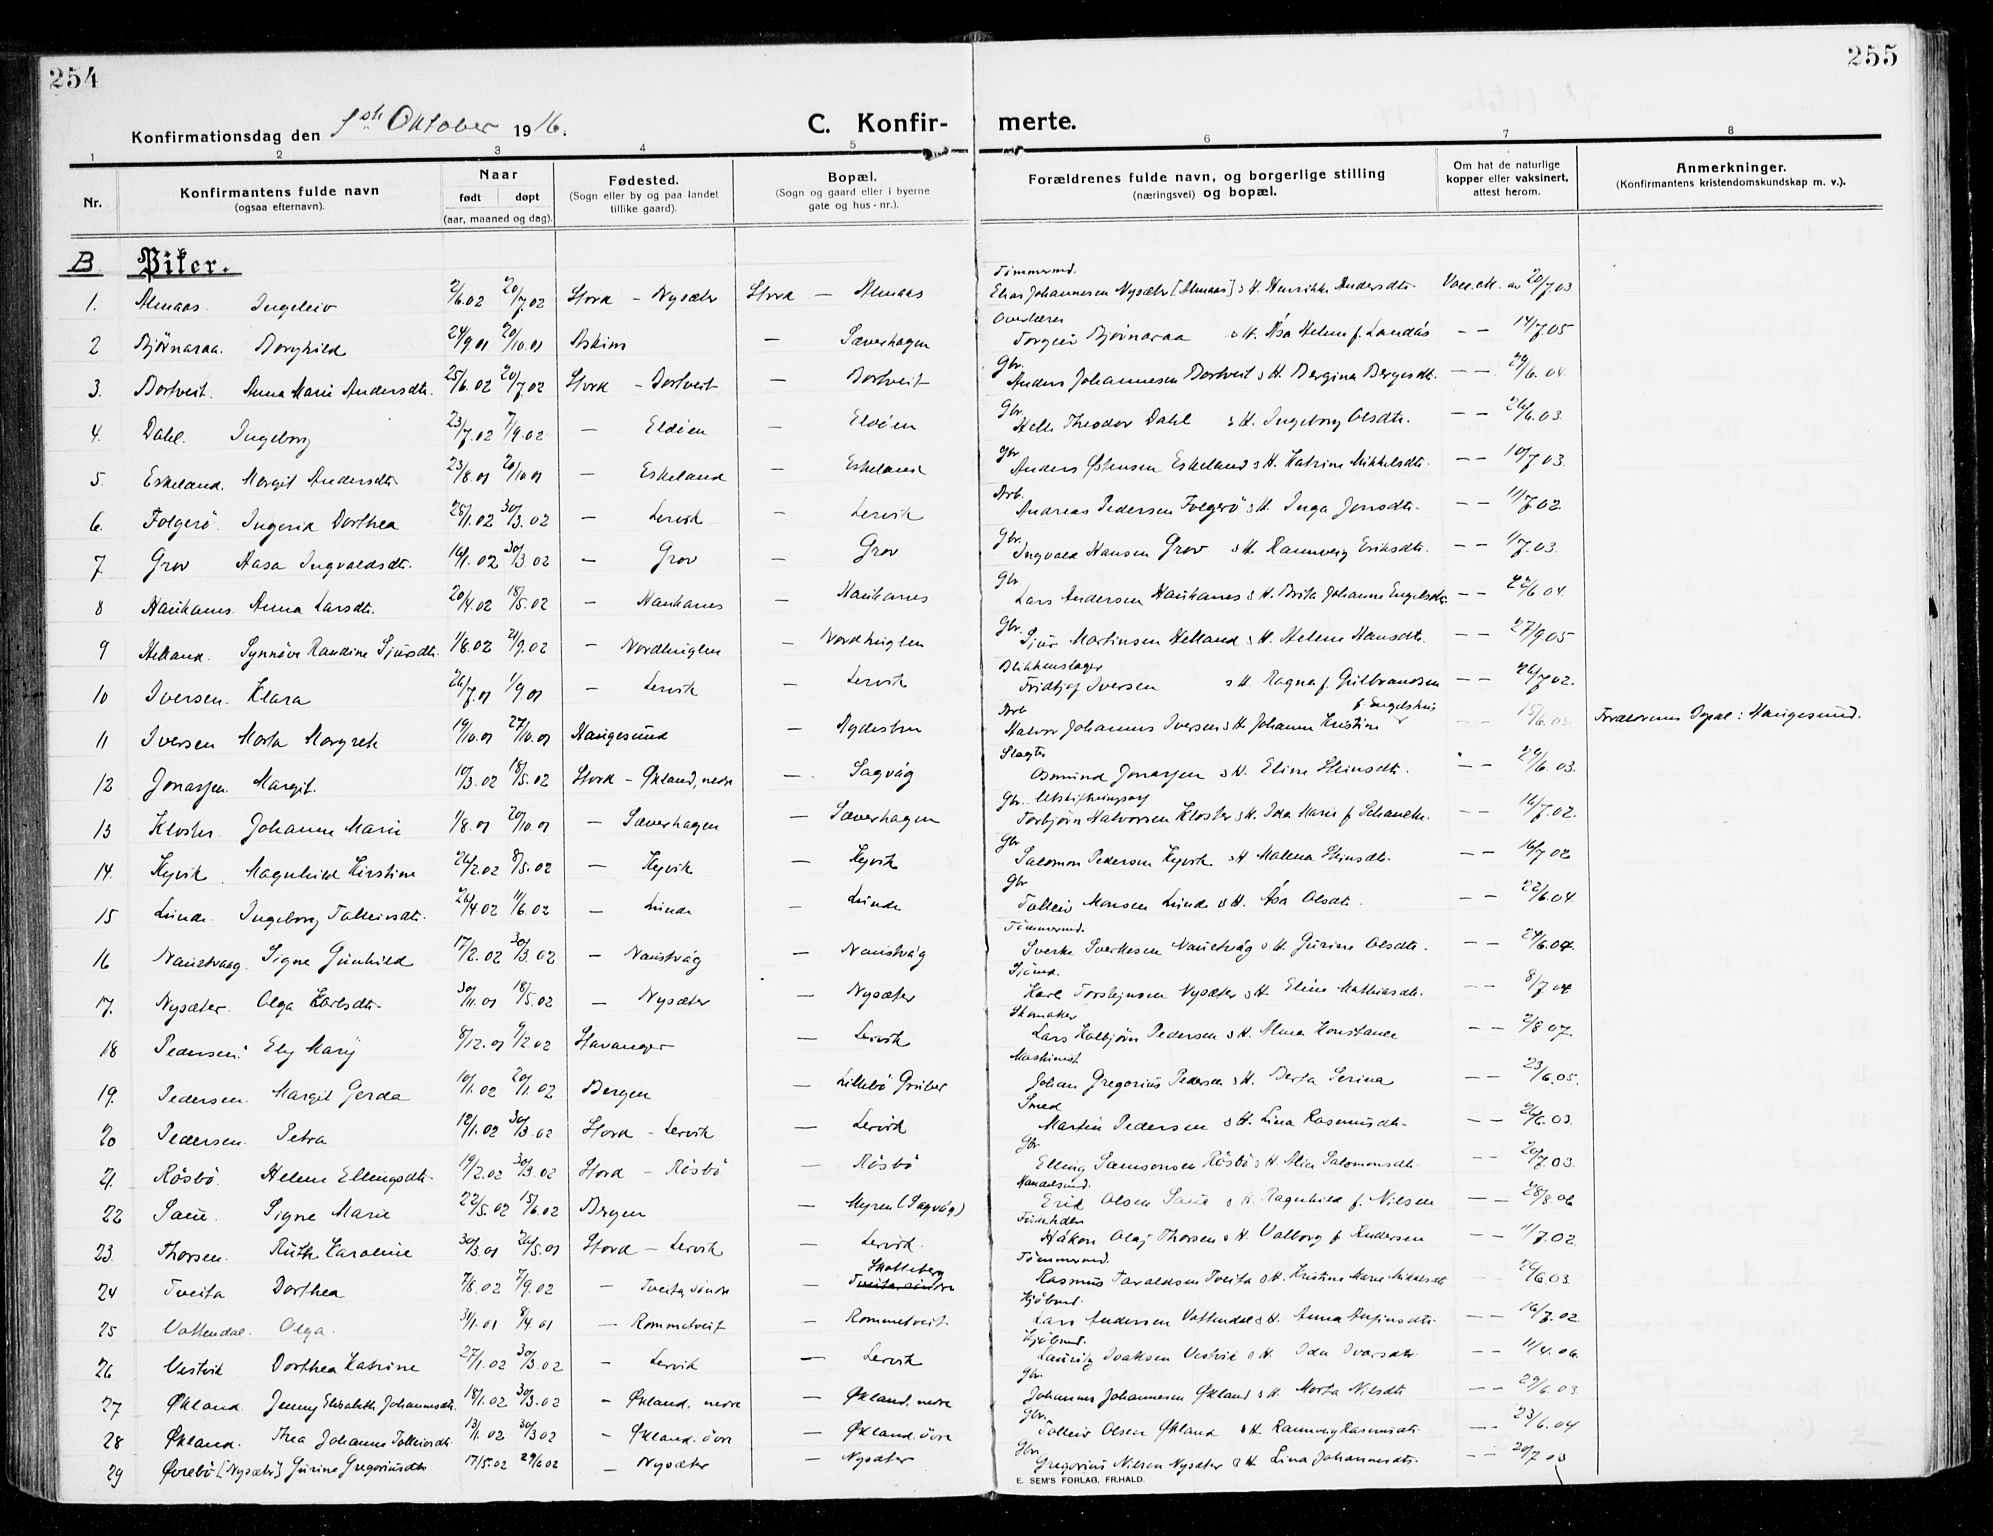 254
255
Konfirmationsdag den 1ste Oktober 1916.
C. Konfirmerte.
1 2 3 4 5 6 7 8
Nr.
Konfirmantens fulde navn (ogsaa efternavn).
Naar født døpt (aar, maaned og dag).
Fødested. (Sogn eller by og paa landet tillike gaard).
Bopæl. (Sogn og gaard eller i byerne gate og hus-nr.).
Forældrenes fulde navn, og borgerlige stilling (næringsvei) og bopæl.
Om hat de naturlige kopper eller vaksinert, attest herom.
Anmerkninger. (Konfirmantens kristendomskundskap m. v.).
B. Piker.
1. Almaas Ingeleiv 2/6.02 20/7.02 Stord – Nysæter Stord – Almaas Tømmermd. Elias Johannesen Nysæter [Almaas] o H. Henrikke Andersdtr. Vacc. att. av 20/7.03
2 Bjørnaraa. Borghild 24/9.01 20/10.01 Askim – Sæverhagen Overlærer Torgeir Bjørnaraa o H. Åsa Helene f. Landås – – 14/7.05
3. Bortveit. Anna Marie Andersdtr. 25/6.02 20/7.02 Stord – Bortveit – Bortveit Gbr. Anders Johannesen Bortveit o H. Bergina Bergesdtr. – – 29/6.04.
4. Dahl. Ingeborg 23/7.02 7/9.02 – Eldöen – Eldöen Gbr. Helle Theodor Dahl o H. Ingeborg Olsdtr. – – 26/6.03.
5. Eskeland. Margit Andersdtr 23/8.01 20/10.01 – Eskeland – Eskeland Gbr. Anders Östensen Eskeland o H. Katrine Mikkelsdtr. – – 10/7.03.
6. Folgerö. Ingerid Dorthea 25/1.02 30/3.02 – Lervik – Lervik Arb. Andreas Pedersen Folgerö o H. Inga Jonsdtr. – – 11/7.02.
7. Grov Aasa Ingvaldsdtr. 16/1.02 30/3.02 – Grov – Grov Gbr. Ingvald Hansen Grov o H. Rannveig Eriksdtr. – – 1/7.03.
8 Haukanes. Anna Larsdtr. 20/4.02 18/5.02 – Haukanes – Haukanes Gbr Lars Andersen Haukanes o H. Brita Johanne Engelsdtr. – – 22/6.04.
9 Helland. Synnöve Randine Sjursdtr. 1/8.02 21/9.02 – Nordhuglen – Nordhuglen Gbr. Sjur Martinsen Helland o H. Helene Hansdtr. – – 27/9.05
10 Iversen. Klara 26/7.01 1/9.01 – Lervik – Lervik Blikkenslager Fridtjof Iversen o H. Ragna f. Gulbrandsen – – 26/7.02.
11 Iversen Marta Margrete 19/10.01 27/10.01 Haugesund – Arb Halvor Johannes Iversen o H. Johanne Kristine f. Engelshus – – 15/6.03. Forældrenes Bopæl: Haugesund.
12 Jonassen. Margit. 10/3.02 18/5.02 Stord – Økland, nedre – Sagvåg Slagter Osmund Jonassen o H. Eline Steinsdtr. – – 29/6.03.
13 Kloster. Johanne Marie 1/8.01 20/10.01 – Sæverhagen – Sæverhagen Gbr. Utskiftningsorf Torbjörn Halvorsen Kloster o H. Ida Marie f Schanche. 16/7.02.
14. Kyvik. Magnhild Kirstine 26/2.02 8/5.02 – Kyvik – Kyvik Gbr Salomon Pedersen Kyvik o H Malena Steinsdtr. – – 16/7.02
15 Lunde. Ingeborg Tolleivsdtr. 26/4.02 11/6.02 – Lunde – Lunde Gbr Tolleiv Monsen Lunde o H. Åsa Olsdtr. – – 22/6.04.
16 Naustvaag. Signe Gunhild 17/2.02 30/3.02 – Naustvåg – Naustvåg Tömmermd. Sverke Sverkesen Naustvåg o H. Gurine Olsdtr. – – 24/6.04.
17. Nysæter. Olga Karlsdtr. 30/11.01 18/5.02 – Nysæter – Nysæter Sjömd. Karl Torsteinsen Nysæter o H. Eline Mathiasdtr. – – 8/7.04
18 Pedersen. Ely Mary 8/12.01 9/2.02 Stavanger – Lervik Skomaker Lars Kolbjörn Pedersen o H. Alma Konstance – – 2/8.07.
19. Pedersen. Margit Gerda 10/1.02 20/1.02 Bergen – Lillebö Gruber Maskinist Johan Gregorius Pedersen o H. Berta Serina – – 23/6.05.
20 Pedersen. Petra 12/1.02 30/3.02 Stord – Lervik – Lervik Smed Martin Pedersen o H. Lina Rasmusdtr. – – 26/6.03.
21. Rösbö. Helene Ellingsdtr. 19/2.02 30/3.02 Stord – Rösbö – Rösbö Gbr Elling Samsonsen Rösbö o H. Alice Salomonsdtr. – – 20/7.03.
22 Saue. Signe Marie 22/5.02 15/6.02 Bergen – Myren (Sagvåg) Handelsmd. Erik Olsen Saue o H. Ragnhild f. Nilsen – – 28/8.06
23. Thorsen. Ruth Karoline 30/3.01 26/5.01 Stord – Lervik – Lervik. Håkon Olaj Thorsen o H. Valborg f Andersen – – 11/7.02.
24 Tveita Dorthea 7/8.02 7/9.02 – Tveita, söndre – Skotteberg Tveita, söndre Tömmermd. Rasmus Taraldsen Tveita o H. Kristine Marie Mikkelsdtr. – – 26/6.03.
25 Vattendal. Olga. 31/1.01 8/4.01 – Rommetveit – Rommetveit Kjöbmd. Lars Andersen Vattendal o H. Anna Anfinsdtr. – – 16/7.02.
26 Vestvik Dorthea Katrine 27/1.02 30/3.02 – Lervik – Lervik Kjöbmd. Lauritz Isaksen Vestvik o H. Ida Ivarsdtr. – – 11/4.06.
27 Økland. Jenny Elisabeth Johannesdtr. 18/1.02 30/3.02 – Økland, nedre – Økland, nedre Gbr. Johannes Johannesen Økland o H. Marta Nilsdtr – – 29/6.03
28 Økland. Thea Johanne Tolleivsdtr. 13/1.02 30/3.02 – Økland. övre – Økland. övre Gbr. Tolleiv Olsen Økland o H. Rannveig Rasmusdtr. – – 23/6.04
29 Øvrebö [Nysæter] Gurine Gregoriusdtr 17/5.02 29/6.02 – Nysæter – Nysæter Gbr. Gregorius Nilsen Nysæter o H. Lina Johannesdtr. – – 20/7.03
E. SEM'S FORLAG, FR.HALD.